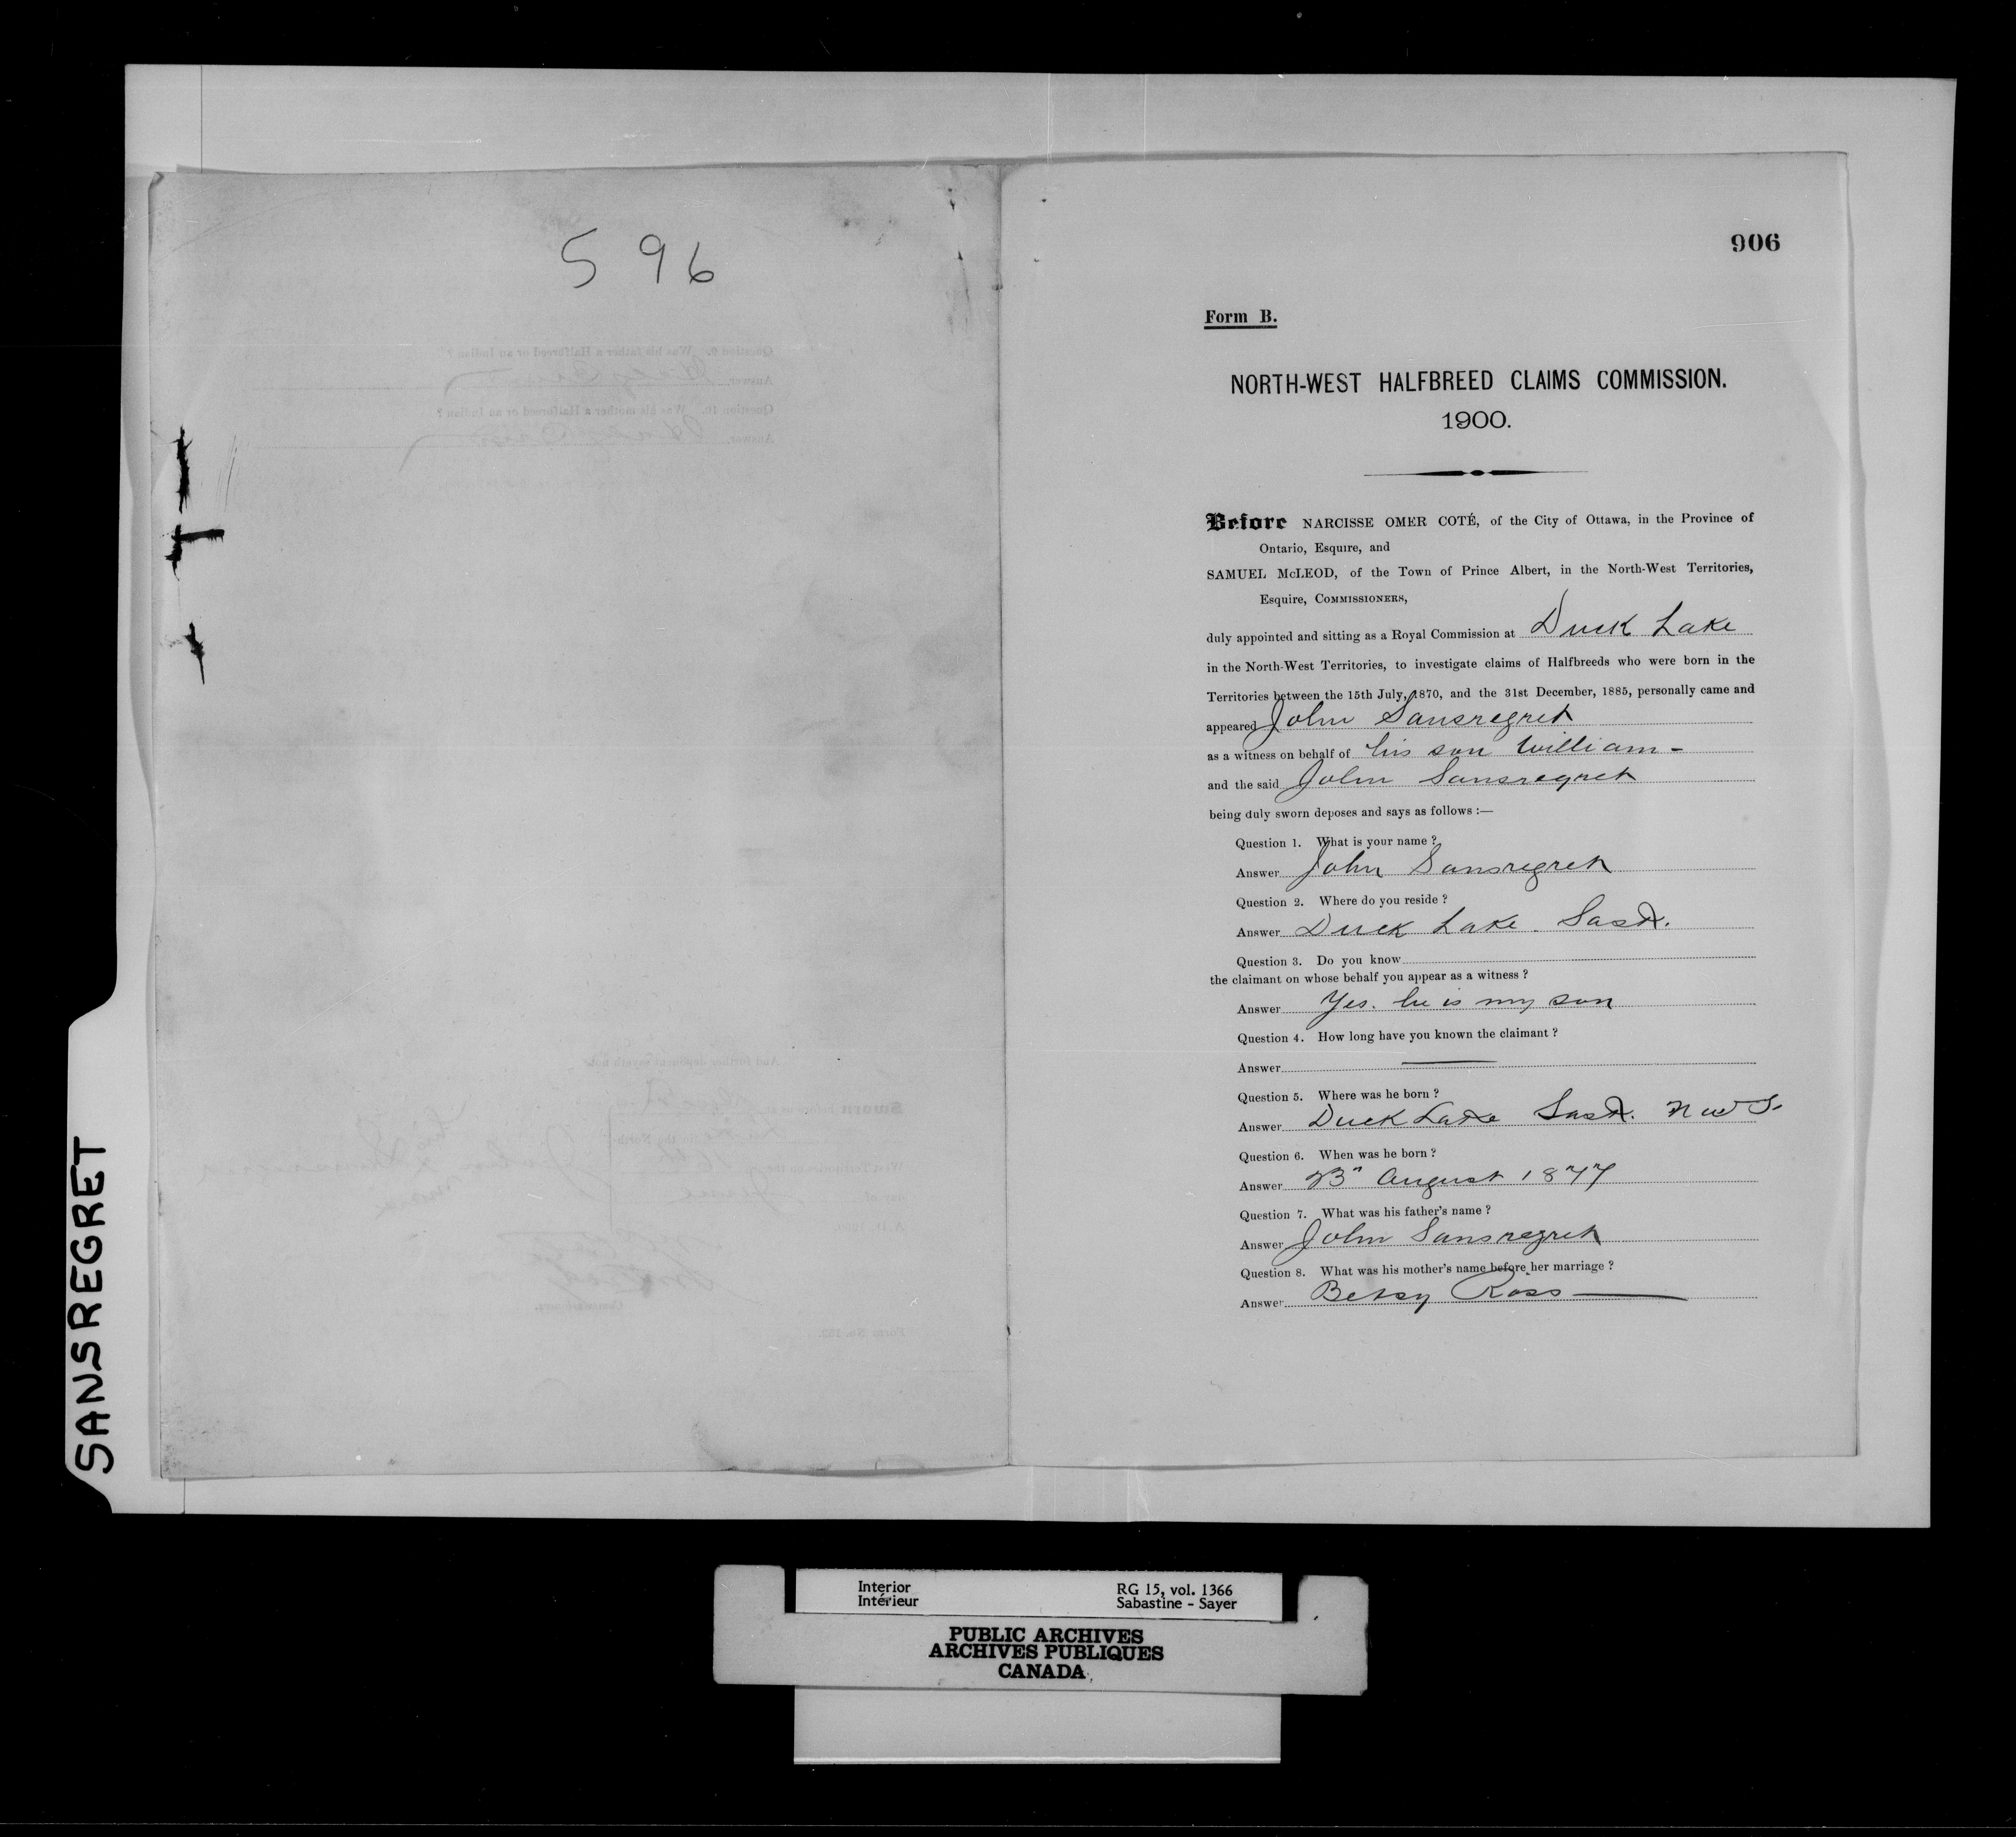 596
906
Form B.
NORTH-WEST HALFBREED CLAIMS COMMISSION.
1900.
Before NARCISSE OMER COTÉ, of the City of Ottawa, in the Province of
Ontario, Esquire, and
SAMUEL McLEOD, of the Town of Prince Albert, in the North-West Territories,
Esquire, COMMISSIONERS,
duly appointed and sitting as a Royal Commission at Duck Lake
in the North-West Territories, to investigate claims of Halfbreeds who were born in the
Territories between the 15th July, 1870, and the 31st December, 1885, personally came and
appeared John Sansregret
as a witness on behalf of his son William -
and the said John Sansregret
being duly sworn deposes and says as follows :—
Question 1. What is your name ?
Answer John Sansregret
Question 2. Where do you reside ?
Answer Duck Lake Sask.
Question 3. Do you know
the claimant on whose behalf you appear as a witness ?
Answer Yes. he is my son
Question 4. How long have you known the claimant ?
Answer
Question 5. Where was he born ?
Answer Duck Lake Sask. N W T.
Question 6. When was he born ?
Answer August 1877
Question 7. What was his father's name ?
Answer John Sansregret
Question 8. What was his mother's name before her marriage ?
Answer Betsy Ross
SANSREGRET
Interior RG 15, vol. 1366
Intérieur Sabastine - Sayer
PUBLIC ARCHIVES
ARCHIVES PUBLIQUES
CANADA